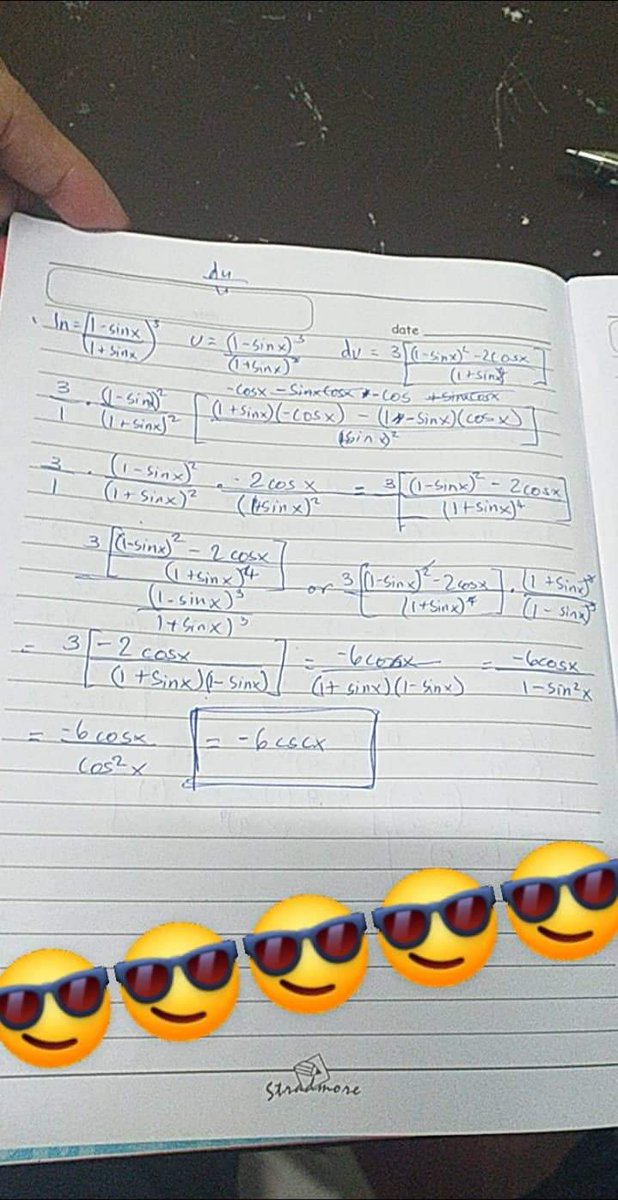 du
u
date
ln = (1-sinx / 1+sinx)³ u = (1-sinx)³ / (1+sinx)³ du = 3[(1-sinx)² -2cosx / (1+sinx)⁴]
-cosx - sinxcosx - cos + sinxcosx
3/1 · (1-sinx)² / (1+sinx)² [(1+sinx)(-cosx) - (1-sinx)(cosx) / (sinx)²]
3/1 · (1-sinx)² / (1+sinx)² · -2cosx / (1+sinx)² = 3[(1-sinx)² - 2cosx / (1+sinx)⁴]
3[(1-sinx)² - 2cosx / (1+sinx)⁴] / (1-sinx)³ / 1+sinx)³ or 3[(1-sinx)² - 2cosx / (1+sinx)⁴] · (1+sinx)³ / (1-sinx)³
= 3[-2cosx / (1+sinx)(1-sinx)] = -6cosx / (1+sinx)(1-sinx) = -6cosx / 1-sin²x
= -6cosx / cos²x = -6cscx
Stradmore